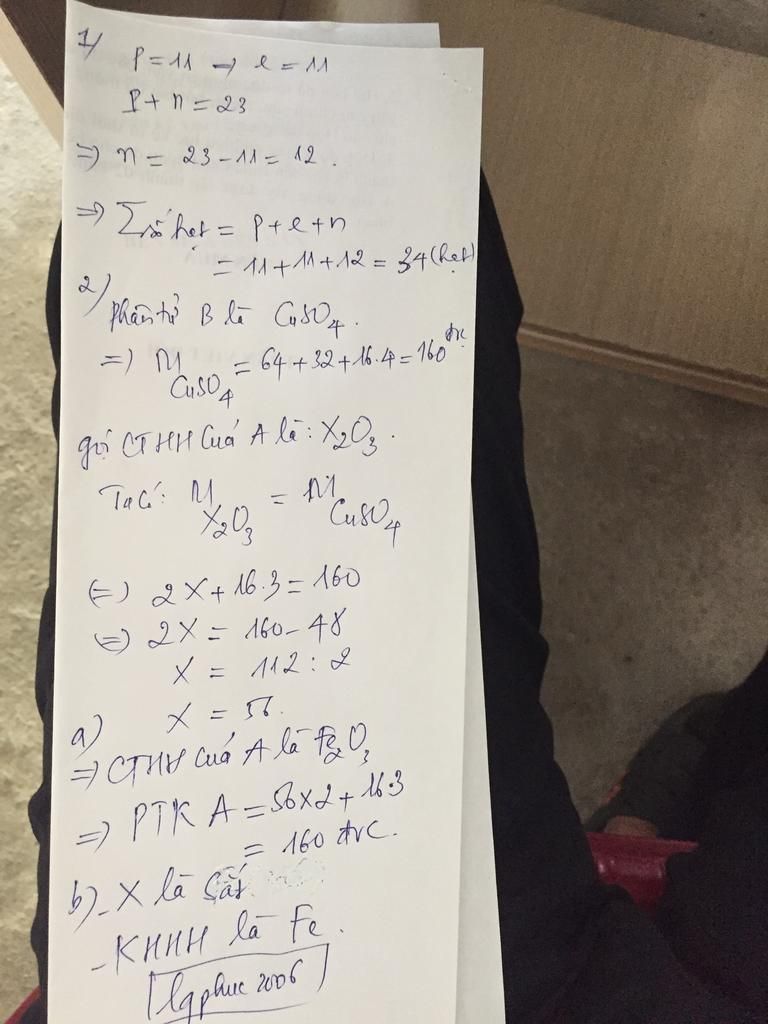 1/
P = 11 → e = 11
P + n = 23
=> n = 23 - 11 = 12.
=> ∑ số hạt = p + e + n
= 11 + 11 + 12 = 34 (hạt)
2/
phân tử B là CuSO4.
=) M CuSO4 = 64 + 32 + 16.4 = 160 đvc
gọi CTHH Của A là: X2O3.
Ta có: M X2O3 = M CuSO4
(=) 2X + 16.3 = 160
(=) 2X = 160 - 48
X = 112 : 2
X = 56.
a)
=> CTHH của A là Fe2O3
=> PTK A = 56x2 + 16.3
= 160 đvc.
b) - X là Sắt
- KHHH là Fe.
lqphuc 2006